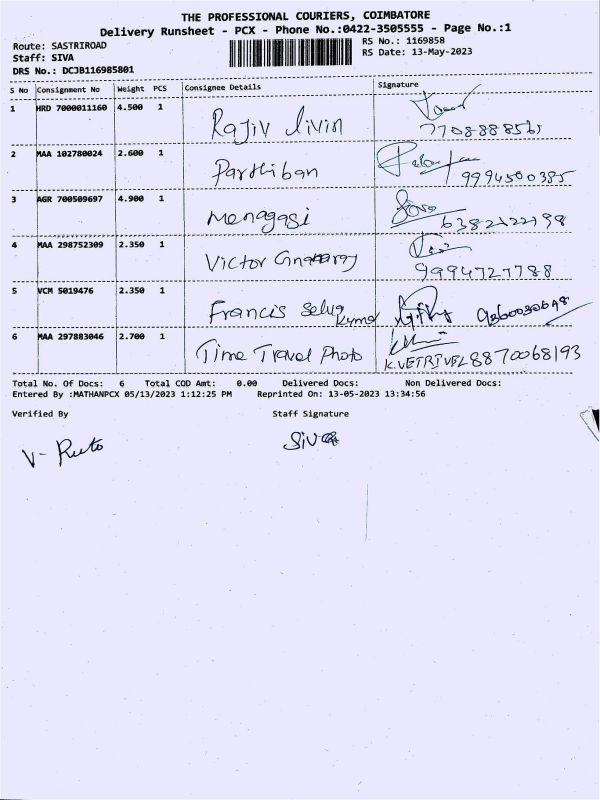 THE PROFESSIONAL COURIERS, COIMBATORE
Delivery Runsheet - PCX - Phone No.:0422-3505555 - Page No.:1
Route: SASTRIROAD
Staff: SIVA
DRS No.: DCJB116985801
RS No.: 1169858
RS Date: 13-May-2023
S No Consignment No Weight PCS Consignee Details Signature
1 HRD 7000011160 4.500 1 Rajiv livin
2 MAA 102780024 2.600 1 Parthiban 9994500385
3 AGR 700509697 4.900 1 Menagasi
4 MAA 298752309 2.350 1 Victor 9994727788
5 VCM 5019476 2.350 1 Francis Selva Kumar
6 MAA 297883046 2.700 1 Time Travel Photo K.VETRIVEL 8870068193
Total No. Of Docs: 6 Total COD Amt: 0.00 Delivered Docs: Non Delivered Docs:
Entered By :MATHANPCX 05/13/2023 1:12:25 PM Reprinted On: 13-05-2023 13:34:56
Verified By Staff Signature
Siva